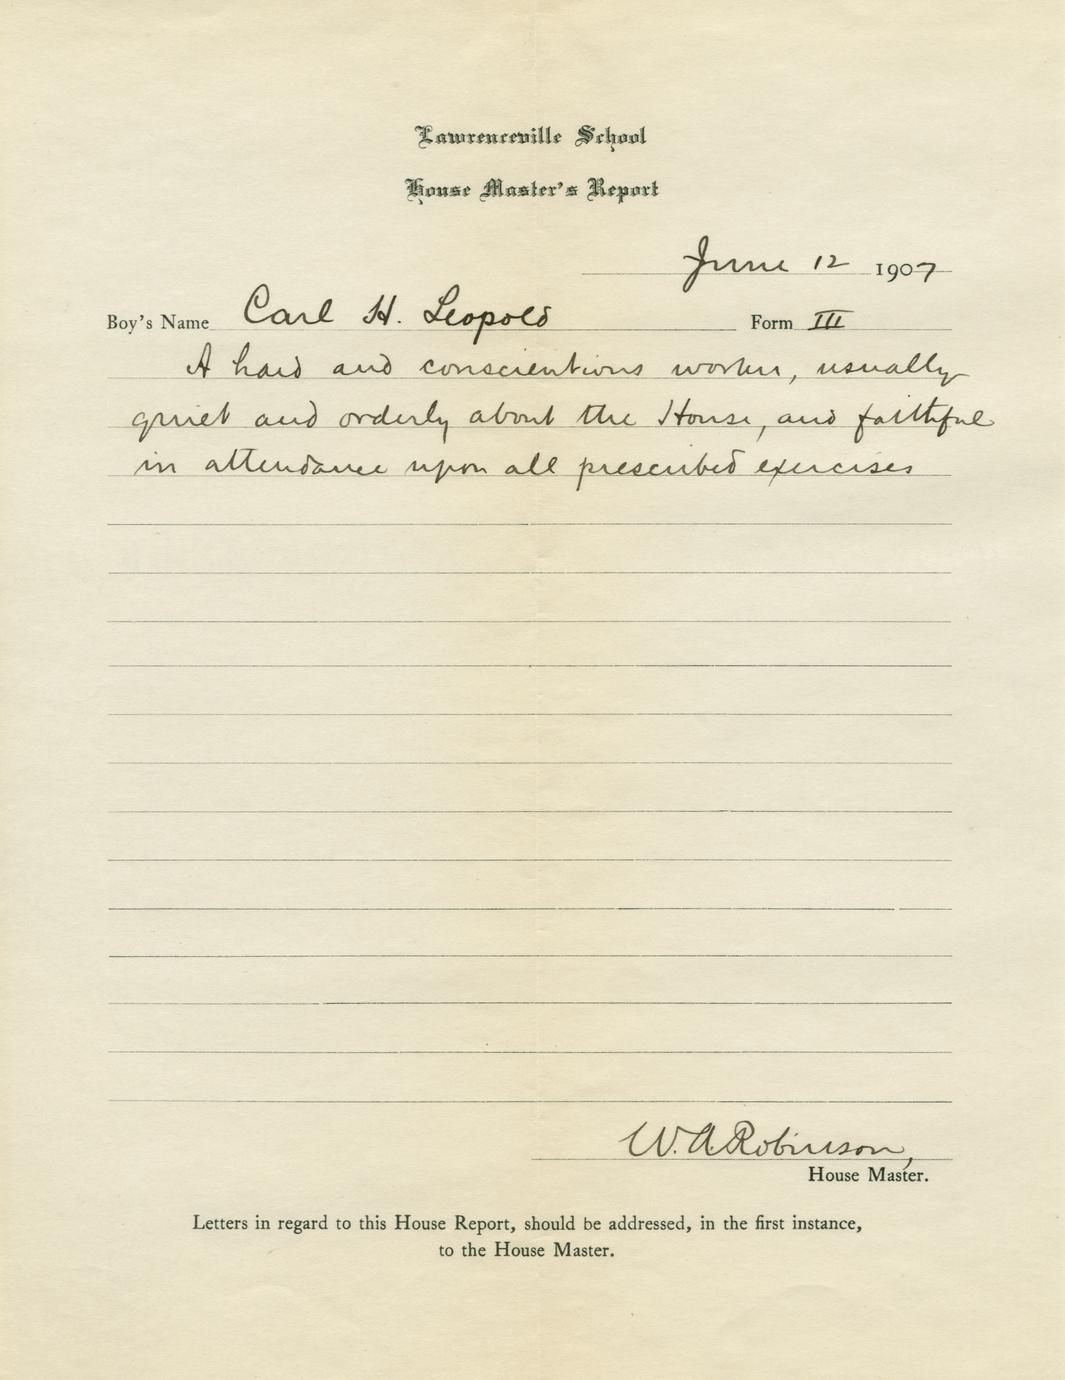 Lawrenceville School
House Master's Report
June 12 1907
Boy's Name Carl H. Leopold Form III
A hard and conscientious worker, usually
quiet and orderly about the House, and faithful
in attendance upon all prescribed exercises
W. A. Robinson,
House Master.
Letters in regard to this House Report, should be addressed, in the first instance,
to the House Master.